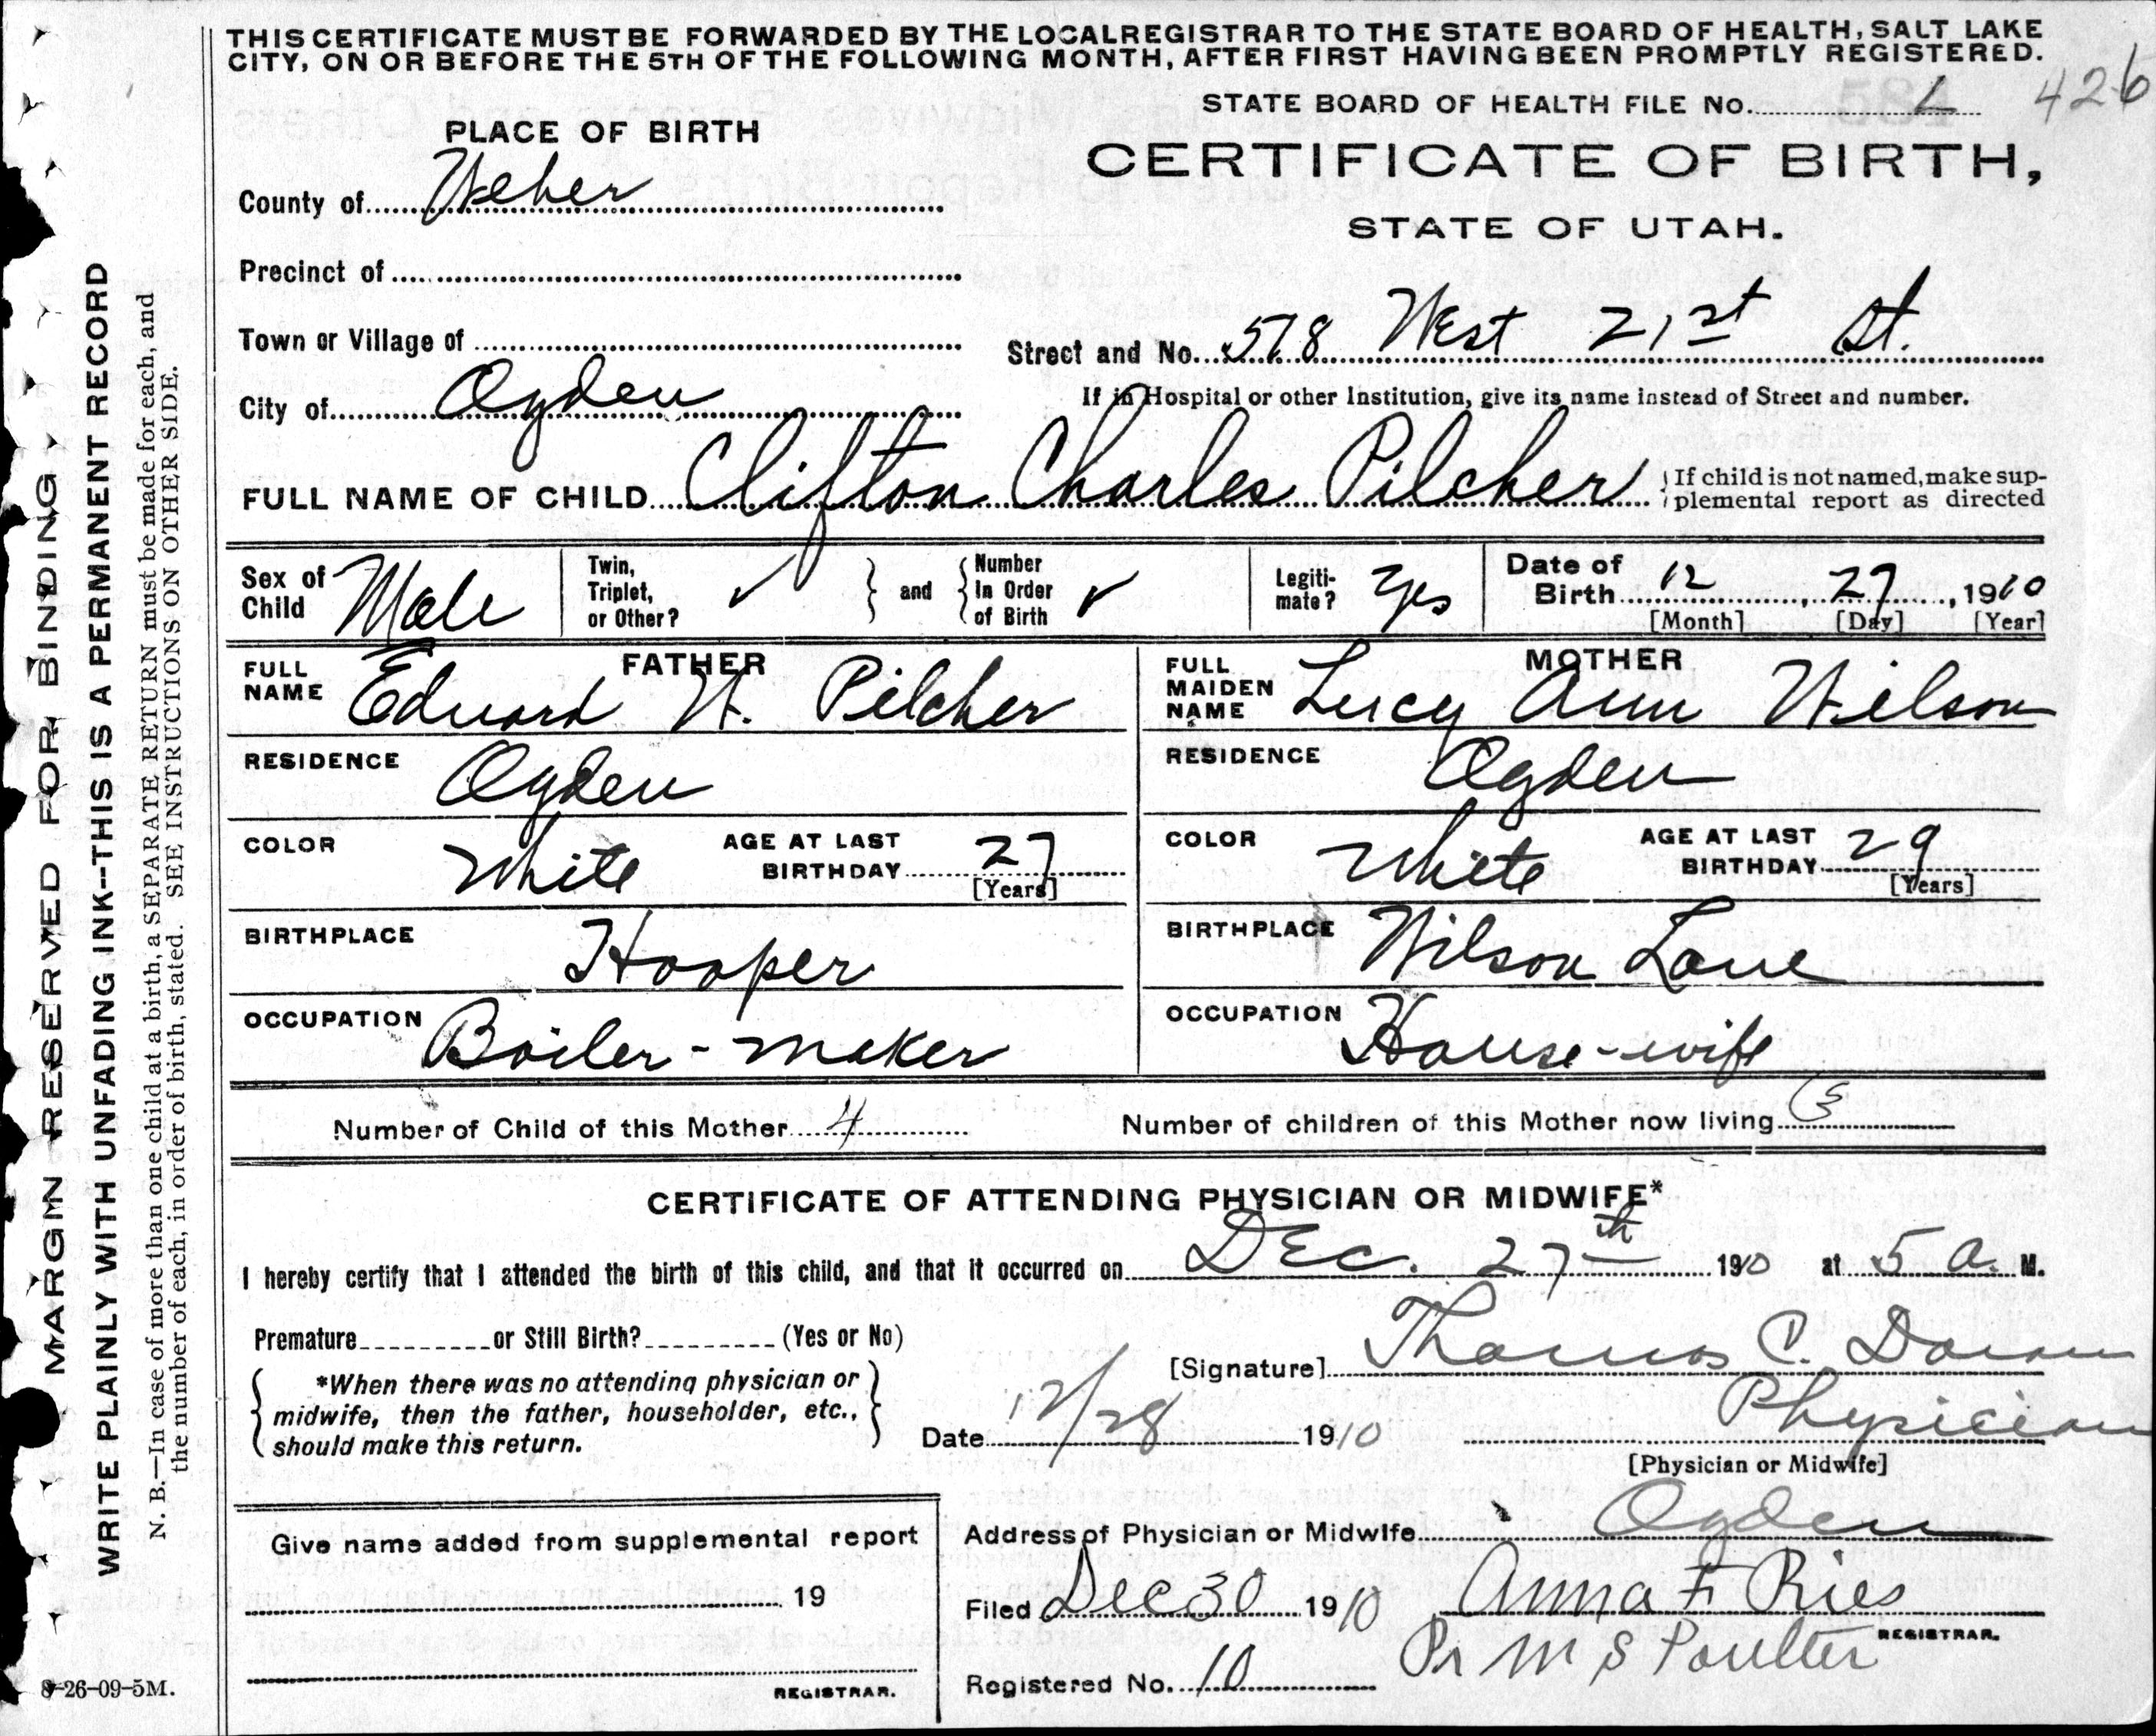 THIS CERTIFICATE MUST BE FORWARDED BY THE LOCAL REGISTRAR TO THE STATE BOARD OF HEALTH, SALT LAKE
CITY, ON OR BEFORE THE 5TH OF THE FOLLOWING MONTH, AFTER FIRST HAVING BEEN PROMPTLY REGISTERED.
STATE BOARD OF HEALTH FILE No. L 426
PLACE OF BIRTH
CERTIFICATE OF BIRTH,
STATE OF UTAH.
County of Weber
Precinct of
Town or Village of
Street and No. 578 West 21st St.
City of Ogden
If in Hospital or other Institution, give its name instead of Street and number.
FULL NAME OF CHILD Clifton Charles Pilcher
If child is not named, make sup-
plemental report as directed
Sex of Child Male
Twin, Triplet, or Other? ✓ and Number In Order of Birth ✓
Legiti-mate? Yes
Date of Birth 12, 27, 1910
[Month] [Day] [Year]
FATHER
FULL NAME Edward W. Pilcher
MOTHER
FULL MAIDEN NAME Lucy Ann Wilson
RESIDENCE Ogden
RESIDENCE Ogden
COLOR White AGE AT LAST BIRTHDAY 27 [Years]
COLOR White AGE AT LAST BIRTHDAY 29 [Years]
BIRTHPLACE Hooper
BIRTHPLACE Wilson Lane
OCCUPATION Boiler-maker
OCCUPATION House-wife
Number of Child of this Mother 4
Number of children of this Mother now living 3
CERTIFICATE OF ATTENDING PHYSICIAN OR MIDWIFE*
I hereby certify that I attended the birth of this child, and that it occurred on Dec. 27th 1910 at 5 a. M.
Premature or Still Birth? (Yes or No)
[Signature] Thomas C.
*When there was no attending physician or
midwife, then the father, householder, etc.,
should make this return.
Date 12/28 1910
Physician
[Physician or Midwife]
Give name added from supplemental report
19
REGISTRAR.
Address of Physician or Midwife Ogden
Filed Dec 30 1910 Anna F Ries
REGISTRAR.
Pr M S Poulter
Registered No. 10
8-26-09-5M.
MARGIN RESERVED FOR BINDING
WRITE PLAINLY WITH UNFADING INK--THIS IS A PERMANENT RECORD
N. B.—In case of more than one child at a birth, a SEPARATE RETURN must be made for each, and
the number of each, in order of birth, stated. SEE INSTRUCTIONS ON OTHER SIDE.